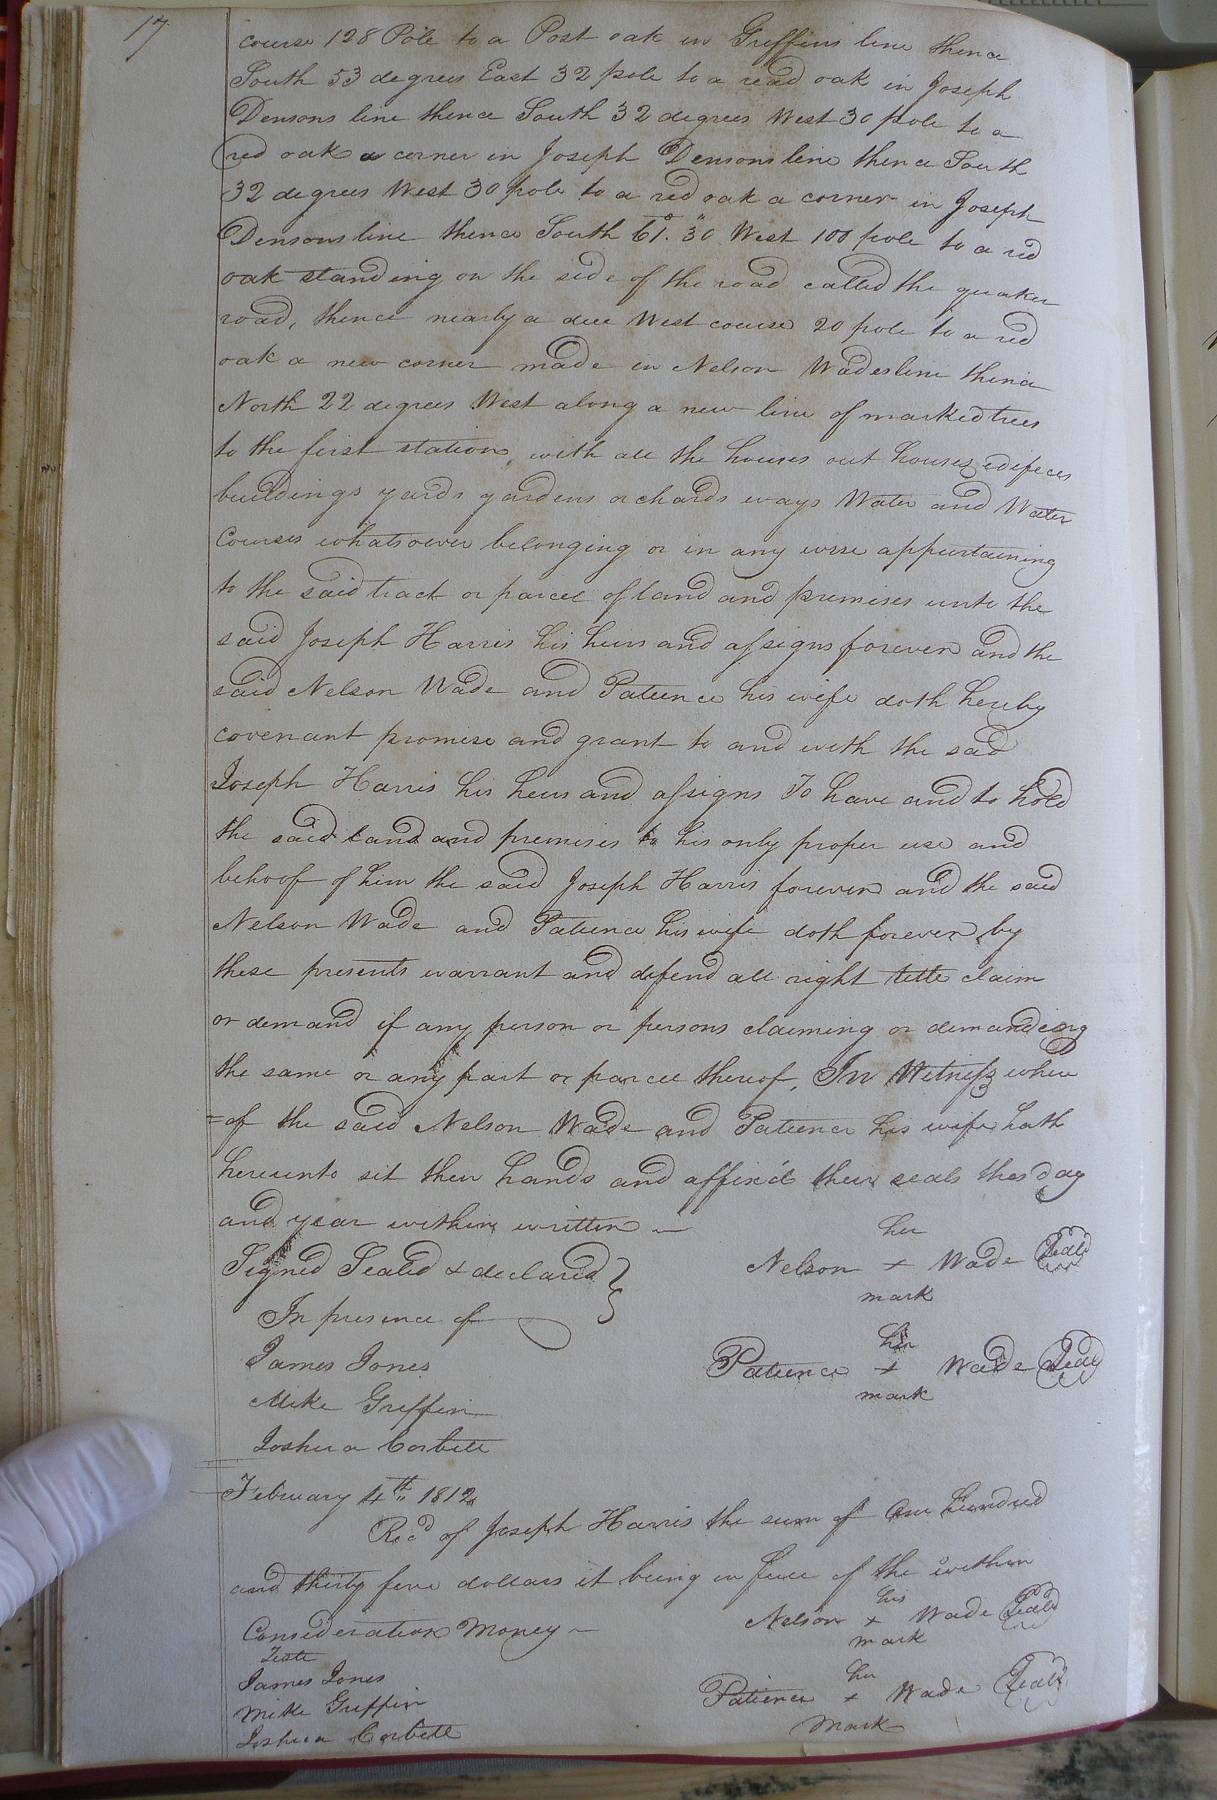 17
course 128 Pole to a Post oak in Griffins line thence
South 53 degrees East 32 pole to a read oak in Joseph
Densons line thence South 32 degrees West 30 pole to a
red oak a corner in Joseph Densons line thence South
32 degrees West 30 pole to a red oak a corner in Joseph
Densons line thence South 61°. 30" West 100 pole to a red
oak standing on the side of the road called the quaker
road, thence nearly a due West course 20 pole to a red
oak a new corner made in Nelson Wades line thence
North 22 degrees West along a new line of marked trees
to the first station, with all the houses out houses edifeces
buildings yards gardens orchards ways Water and Water
Courses whatsoever belonging or in any wise appurtaining
to the said tract or parcel of land and premises unto the
said Joseph Harris his heirs and assigns forever and the
said Nelson Wade and Patience his wife doth hereby
covenant promise and grant to and with the said
Joseph Harris his heirs and assigns To have and to hold
the said land and premises to his only proper use and
behoof of him the said Joseph Harris forever and the said
Nelson Wade and Patience his wife doth forever by
these presents warrant and defend all right title claim
or demand if any person or persons claiming or demanding
the same or any part or parcel thereof, In Witness where
=of the said Nelson Wade and Patience his wife hath
hereunto sit their hands and affix'd their seals the day
and year within written
Signed Sealed & declared
In presence of
James Jones
Mike Griffin
Joshua Corbell
her
Nelson + Wade Seal
mark
her
Patience + Wade Seal
mark
February 4th 1812
Recd of Joseph Harris the sum of One hundred
and thirty five dollars it being in full of the within
Consideration Money
Teste
James Jones
Mike Griffin
Joshua Corbell
his
Nelson + Wade Seal
mark
her
Patience + Wade Seal
Mark